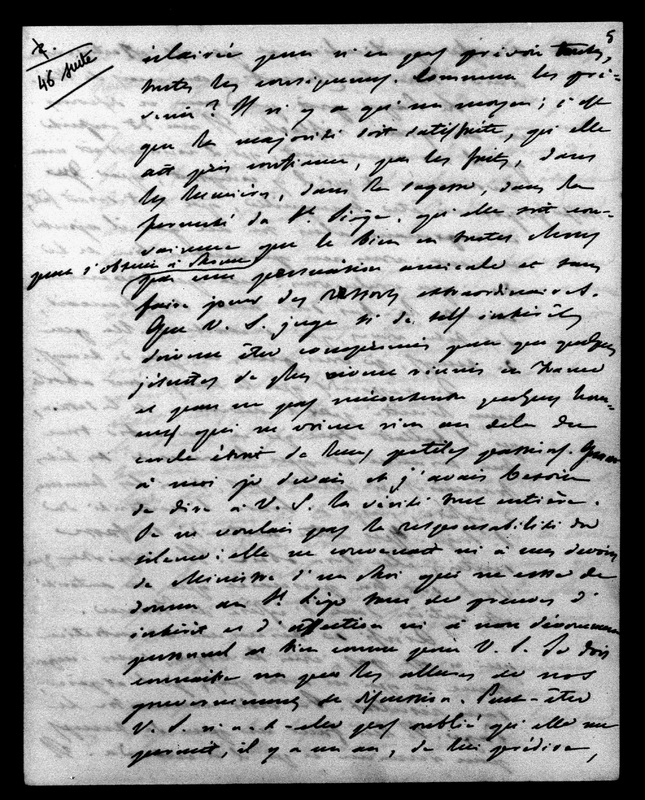 2.
46 suite
5
éclairée pour n'en pas prévoir toutes,
toutes les conséquences. Comment les pré-
venir ? Il n'y a qu'un moyen ; c'est
que la majorité soit satisfaite, qu'elle
ait pris confiance, par les faits, dans
les lumières, dans la sagesse, dans la
fermeté du St Siège. qu'elle soit con-
vaincue que le bien en toutes choses
peut s'obtenir à Rome
par une persuasion amicale et sans
faire jouer des ressorts extraordinaires.
Que V. S. juge si de tels intérêts
doivent être compromis pour que quelques
jésuites de plus vivent réunis en France
et pour ne pas mécontenter quelques hom-
mes qui ne voient rien au delà du
cercle étroit de leurs petites passions. Quant
à moi je devais et j'avais besoin
de dire à V. S. la vérité tout entière.
Je ne voulais pas la responsabilité du
silence : elle ne convenait ni à mes devoirs
de Ministre d'un Roi qui ne cesse de
donner au St Siège tant de preuves d'
intérêt et d'affection ni à mon dévouement
personnel et bien connu pour V. S. Je dois
connaître un peu les allures de nos
gouvernements de discussion. Peut-être
V. S. n'a-t-elle pas oublié qu'elle me
permit, il y a un an, de lui prédire,